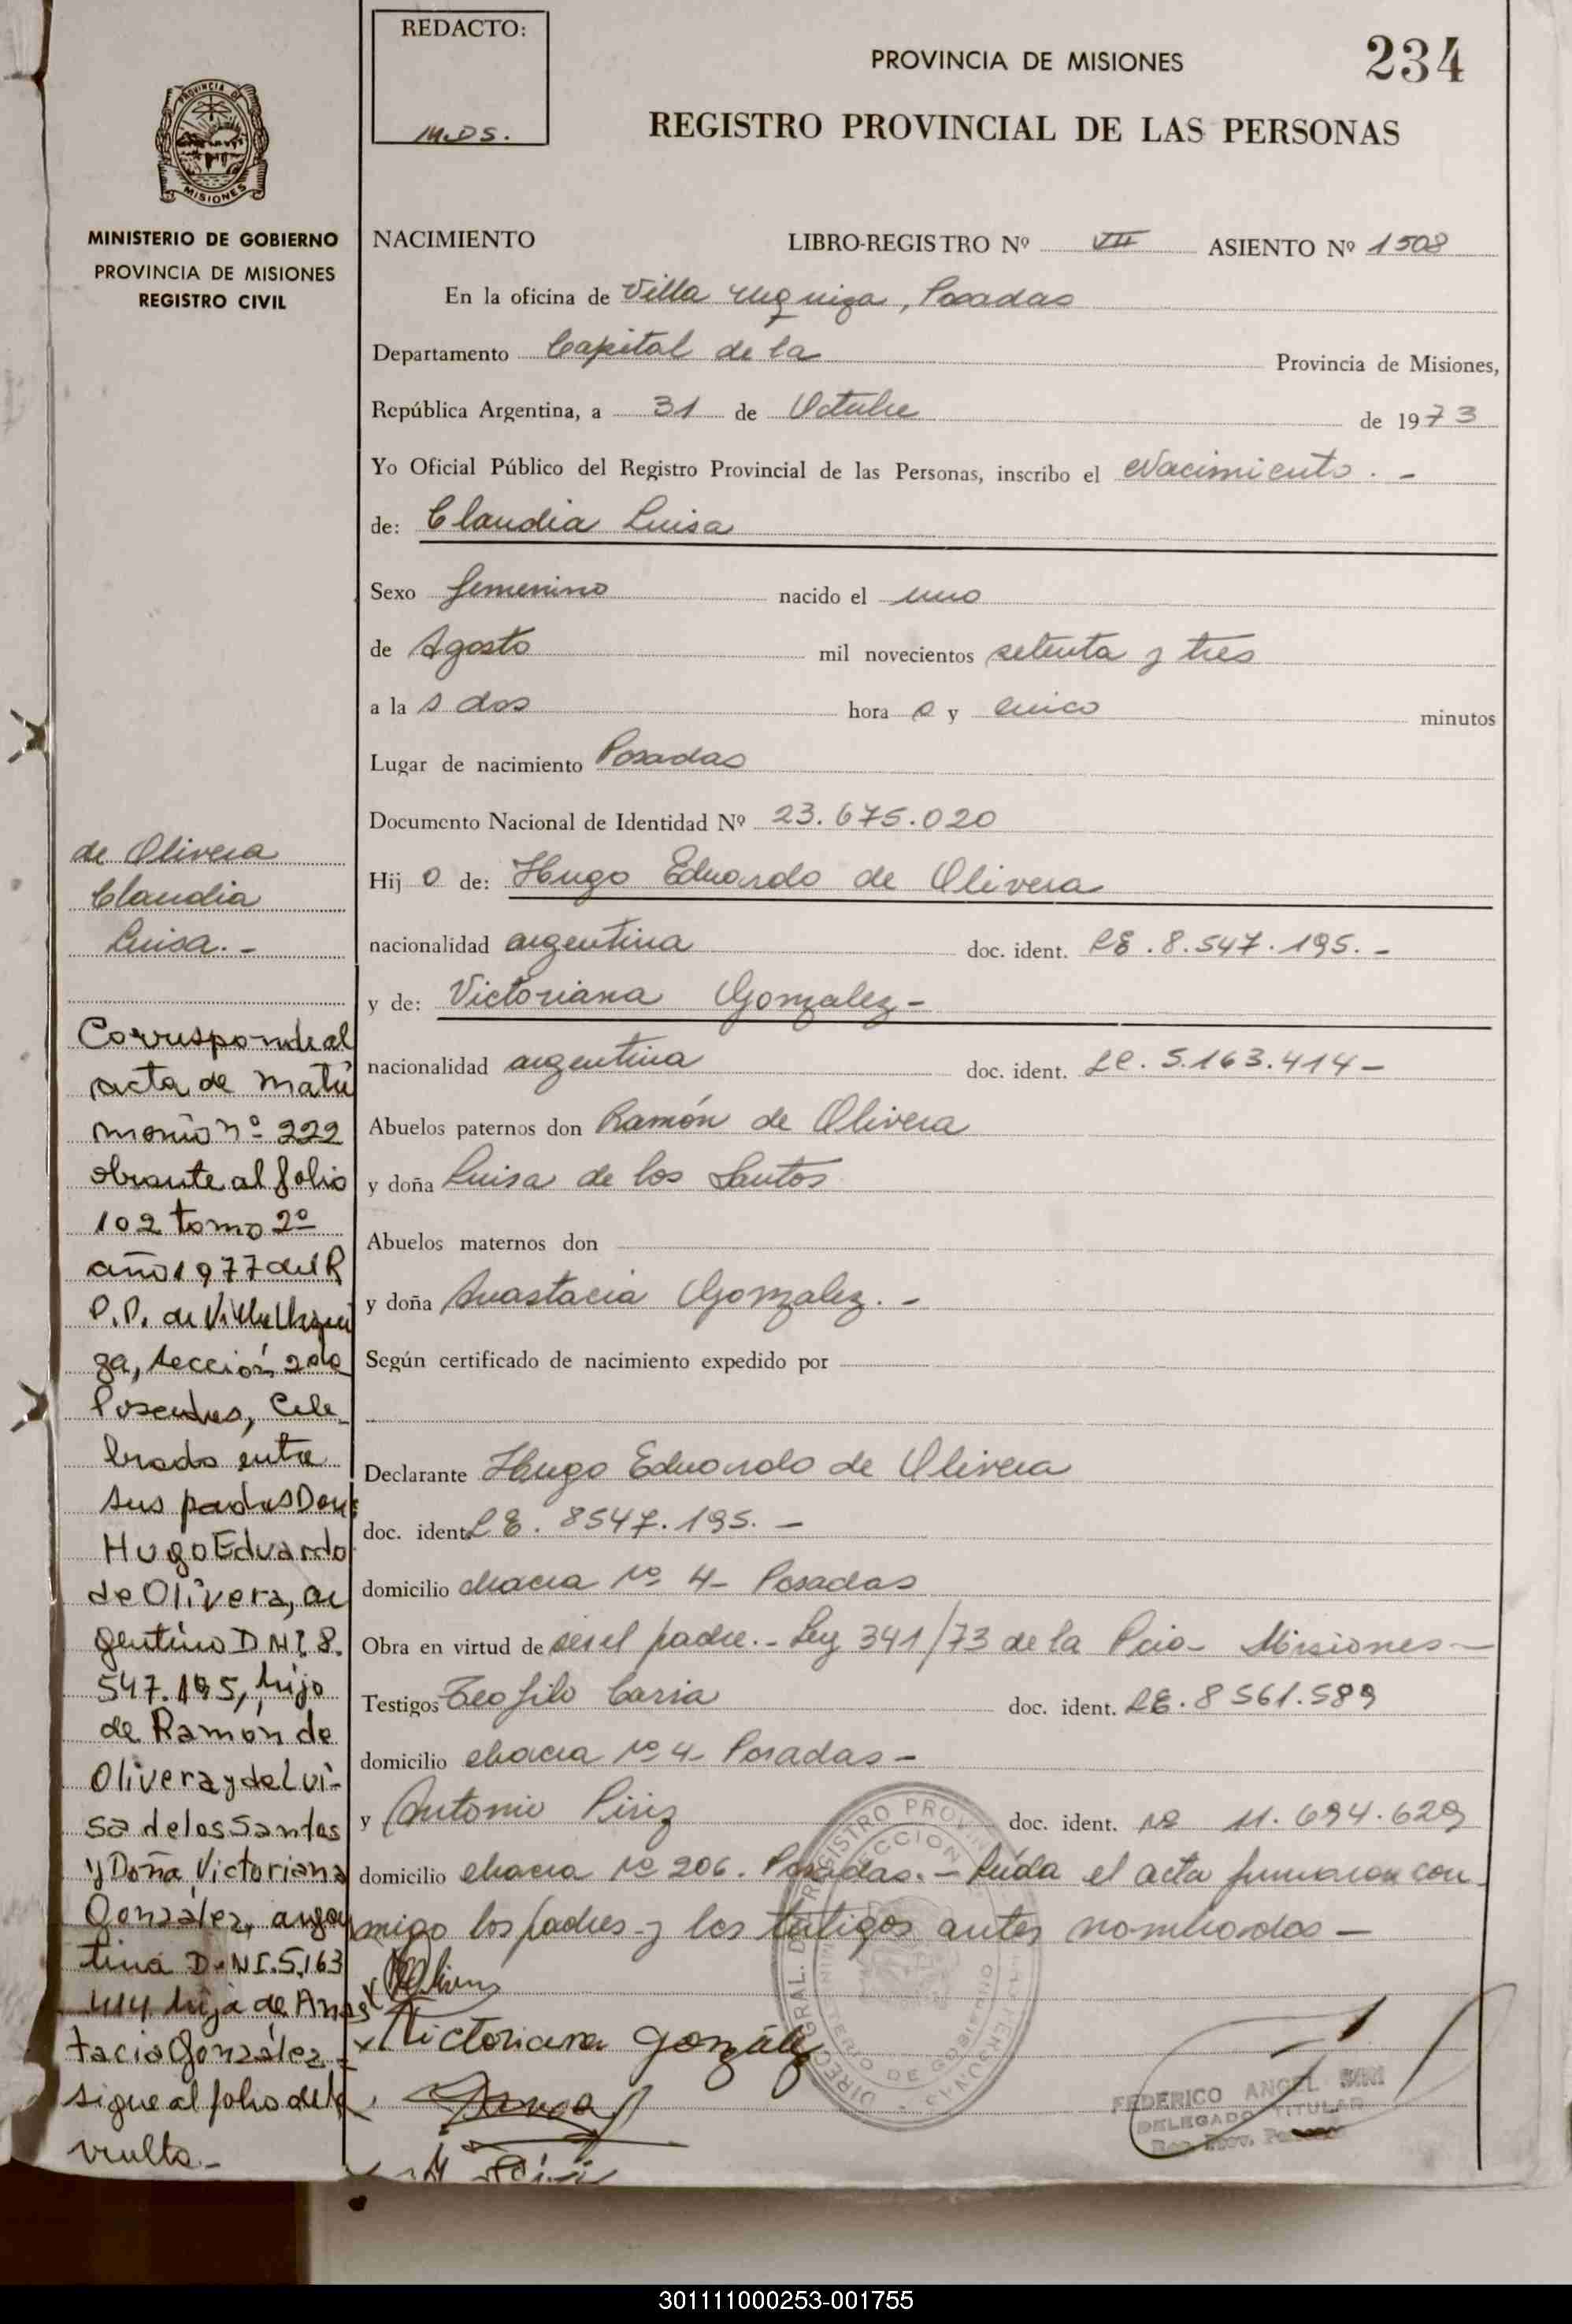 REDACTO:
M.D.S.
PROVINCIA DE MISIONES
234
REGISTRO PROVINCIAL DE LAS PERSONAS
PROVINCIA DE
MISIONES
MINISTERIO DE GOBIERNO
PROVINCIA DE MISIONES
REGISTRO CIVIL
NACIMIENTO LIBRO-REGISTRO Nº VII ASIENTO Nº 1508
En la oficina de Villa Urquiza, Posadas
Departamento Capital de la Provincia de Misiones,
República Argentina, a 31 de Octubre de 1973
Yo Oficial Público del Registro Provincial de las Personas, inscribo el Nacimiento. -
de: Claudia Luisa
Sexo femenino nacido el uno
de Agosto mil novecientos setenta y tres
a la s dos hora s y cinco minutos
Lugar de nacimiento Posadas
Documento Nacional de Identidad Nº 23.675.020
Hij o de: Hugo Eduardo de Olivera
nacionalidad argentina doc. ident. LE. 8.547.195. -
y de: Victoriana Gonzalez -
nacionalidad argentina doc. ident. LC. 5.163.414 -
Abuelos paternos don Ramón de Olivera
y doña Luisa de los Santos
Abuelos maternos don
y doña Anastacia Gonzalez. -
Según certificado de nacimiento expedido por
Declarante Hugo Eduardo de Olivera
doc. ident. LE. 8547.195. -
domicilio chacra Nº 4- Posadas
Obra en virtud de ser el padre. - Ley 341/73 de la Pcia- Misiones -
Testigos Teofilo doc. ident. LE. 8561.589
domicilio chacra Nº 4- Posadas -
y Antonio Piriz doc. ident. Nº 11.694.629
domicilio chacra Nº 206. Posadas. - Leída el acta firmaron con
migo los padres y los testigos antes nombrados -
Victoriana Gonzále
de Olivera
Claudia
Luisa. -
Corresponde al
acta de Matri
monio nº 222
obrante al folio
102 tomo 2º
año 1977 del R
P.P. de Villa Urqui
za, sección 2da
Posadas, Cele
brado entre
sus padres Don:
Hugo Eduardo
de Olivera, ar
gentino D.N.I. 8.
547.195, hijo
de Ramón de
Olivera y de Lui-
sa de los Santos
y Doña Victoriana
González, argen
tina D.N.I. 5.163
414 hija de Anas
tacia González -
sigue al folio de la
vuelta. -
DIRECC. GRAL. DEL REGISTRO PROVIN DE LAS PERSONAS
MINISTERIO DE GOBIERNO
FEDERICO ANGEL
DELEGADO TITULAR
Reg. Prov.
301111000253-001755